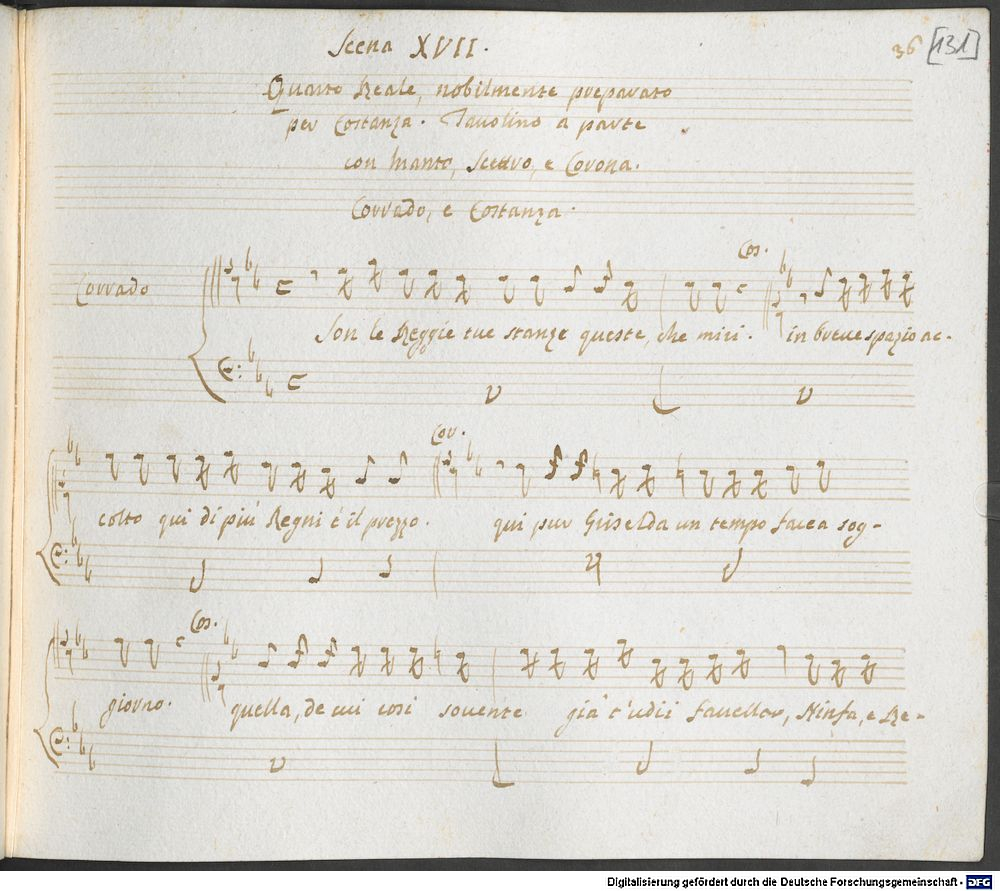 Scena XVII.
36 [131]
Quarto Reale, nobilmente preparato
per Costanza. Tauolino a parte
con Manto, Scettro, e Corona.
Corrado, e Costanza.
Cos.
Corrado
Son le Reggie tue stanze queste, che miri. in breue spazio ac-
Cor.
colto qui di più Regni è il prezzo. qui pur Griselda un tempo facea sog-
Cos.
giorno. quella, de cui così souente già t'udii fauellar, Ninfa, e Re-
Digitalisierung gefördert durch die Deutsche Forschungsgemeinschaft - DFG